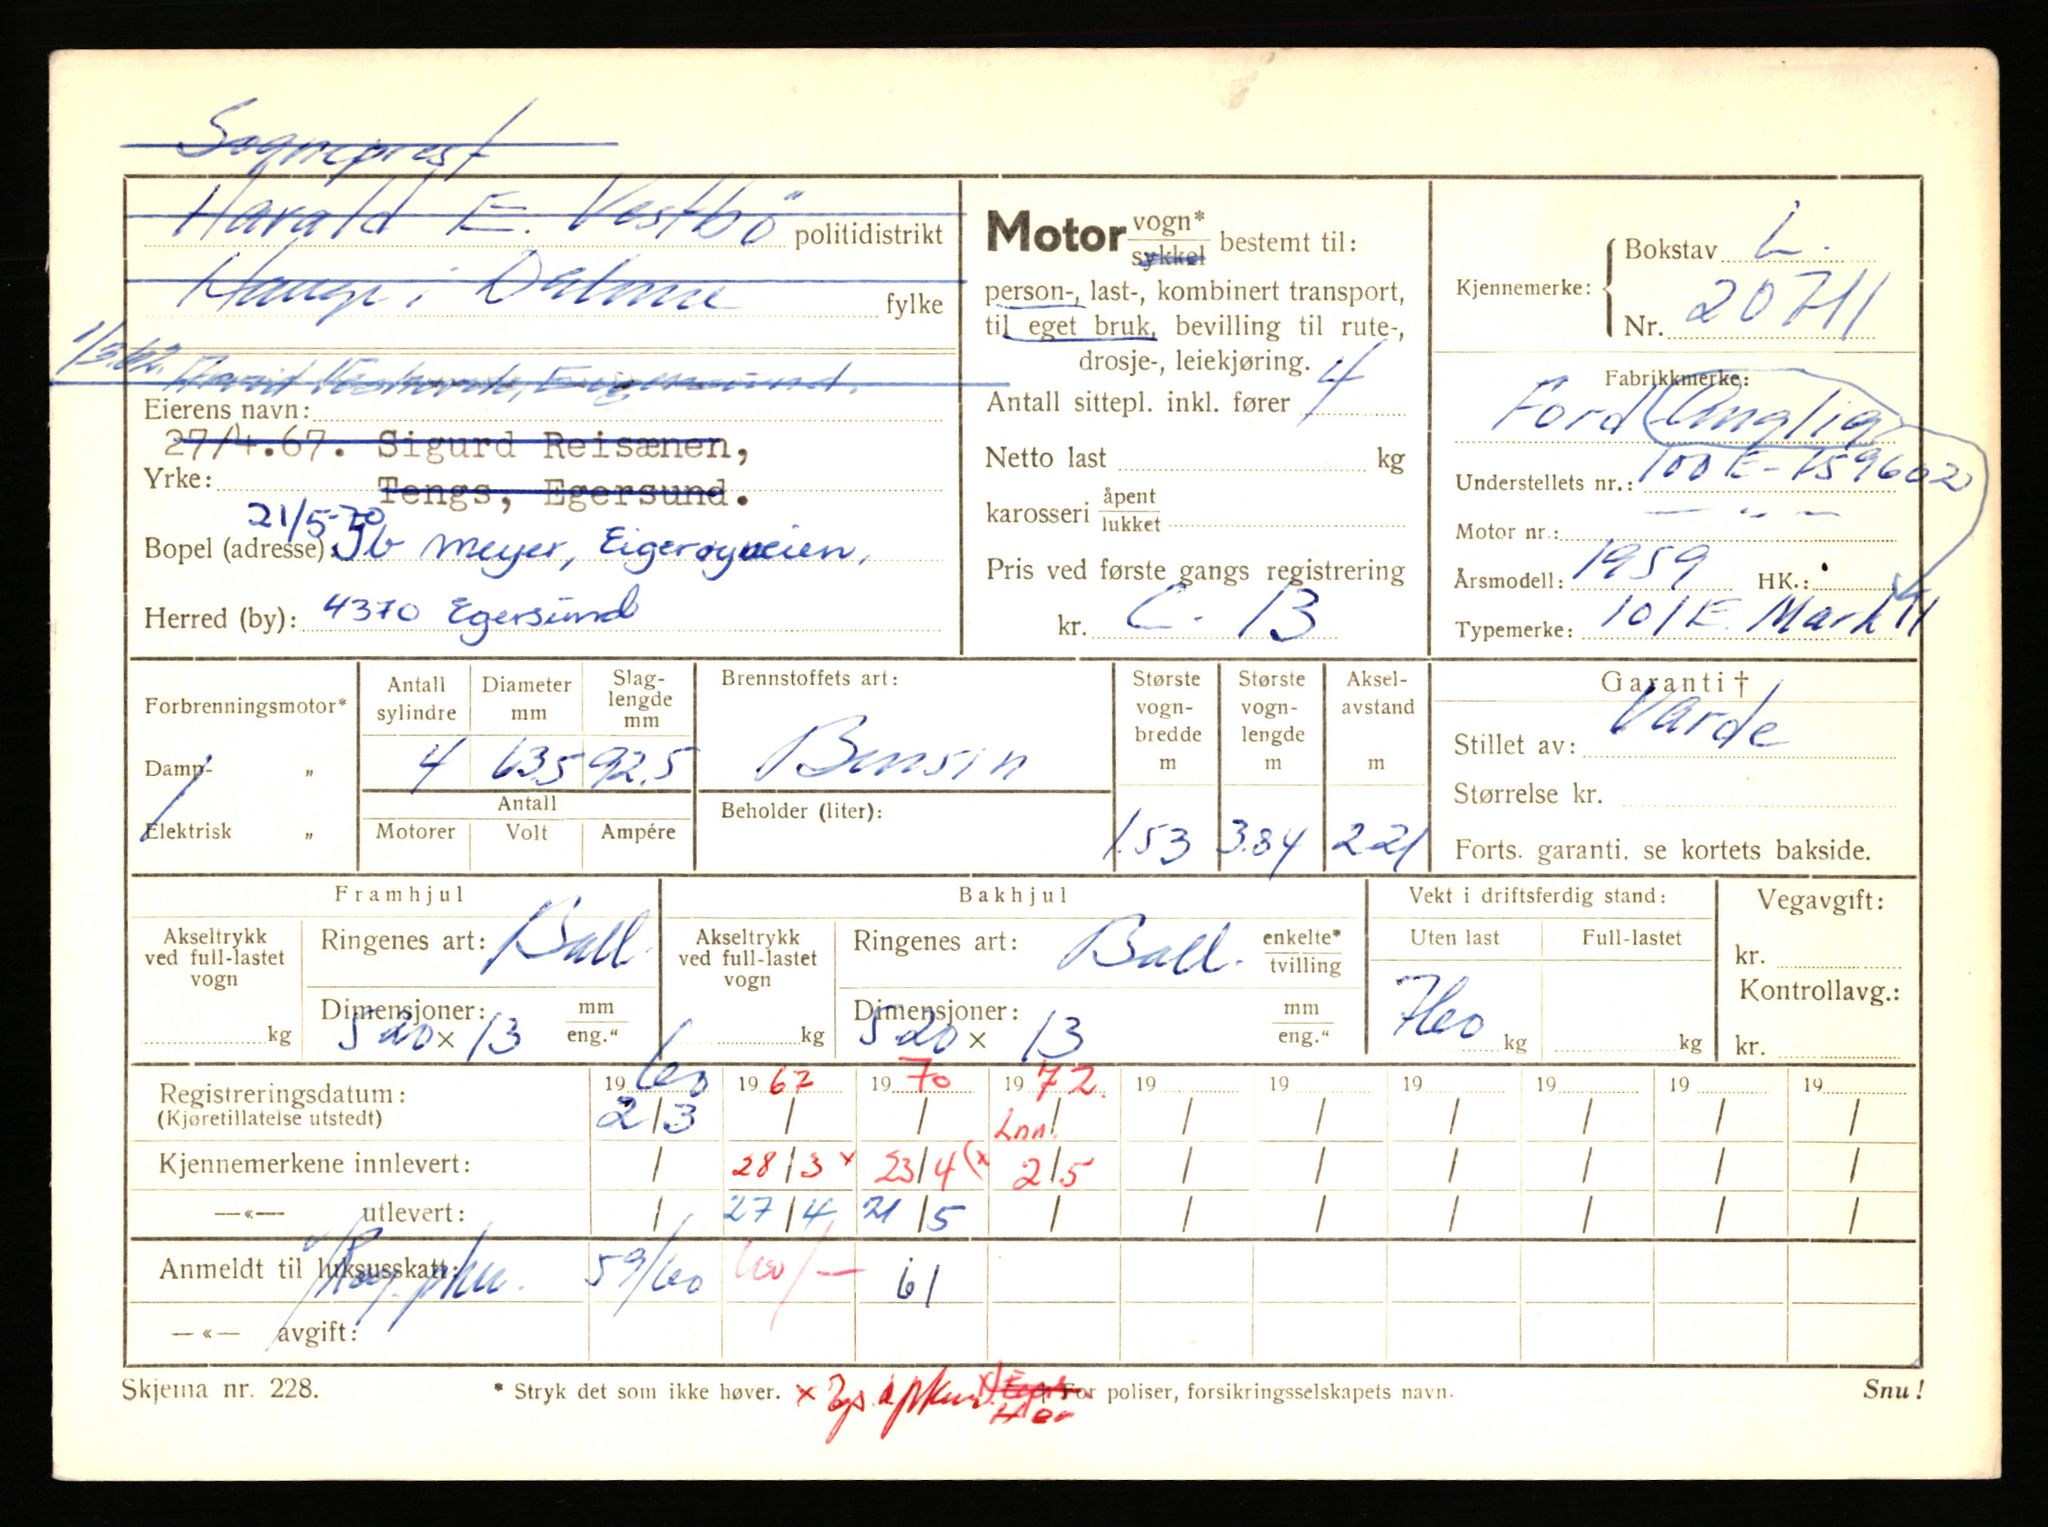 Sogneprest
Harald E. Vestbö politidistrikt
Hauge i Dalane fylke
1/3.62. Egersund.
Eierens navn:
27/4.67. Sigurd Reisænen,
Yrke: Tengs, Egersund.
21/5-70
Bopel (adresse): Ib Meyer, Eigerøyveien,
Herred (by): 4370 Egersund
Motor vogn* sykkel bestemt til:
person-, last-, kombinert transport,
til eget bruk, bevilling til rute-,
drosje-, leiekjøring.
Antall sittepl. inkl. fører 4
Netto last kg
karosseri åpent lukket
Pris ved første gangs registrering
kr. C. 13
Kjennemerke: Bokstav L.
Nr. 20711
Fabrikkmerke:
Ford Anglia
Understellets nr.: 100E-759602
Motor nr.: — " —
Årsmodell: 1959 HK.:
Typemerke: 101E. Mark II
Forbrenningsmotor*
Damp- „
Elektrisk „
Antall sylindre Diameter mm Slag-lengde mm
4 63.5 92.5
Antall
Motorer Volt Ampére
Brennstoffets art:
Bensin
Beholder (liter):
Største vogn-bredde m Største vogn-lengde m Aksel-avstand m
1.53 3.84 2.21
Garanti †
Stillet av: Varde
Størrelse kr.
Forts. garanti. se kortets bakside.
Framhjul
Akseltrykk ved full-lastet vogn
kg
Ringenes art: Ball.
Dimensjoner: mm eng."
520 x 13
Bakhjul
Akseltrykk ved full-lastet vogn
kg
Ringenes art: Ball. enkelte* tvilling
Dimensjoner: mm eng."
520 x 13
Vekt i driftsferdig stand:
Uten last Full-lastet
760 kg kg
Vegavgift:
kr.
Kontrollavg.:
kr.
Registreringsdatum: 19 60 19 67 19 70 19 72. 19 19 19 19 19 19
(Kjøretillatelse utstedt) 2/3 / / / / / / / / /
Lnn.
Kjennemerkene innlevert: / 28/3 x 23/4 (x 2/5 / / / / / /
—«— utlevert: / 27/4 21/5 / / / / / / /
Anmeldt til luksusskatt: 59/60 60/— 61
—«— avgift:
Skjema nr. 228.
* Stryk det som ikke høver. x † For poliser, forsikringsselskapets navn.
Snu!